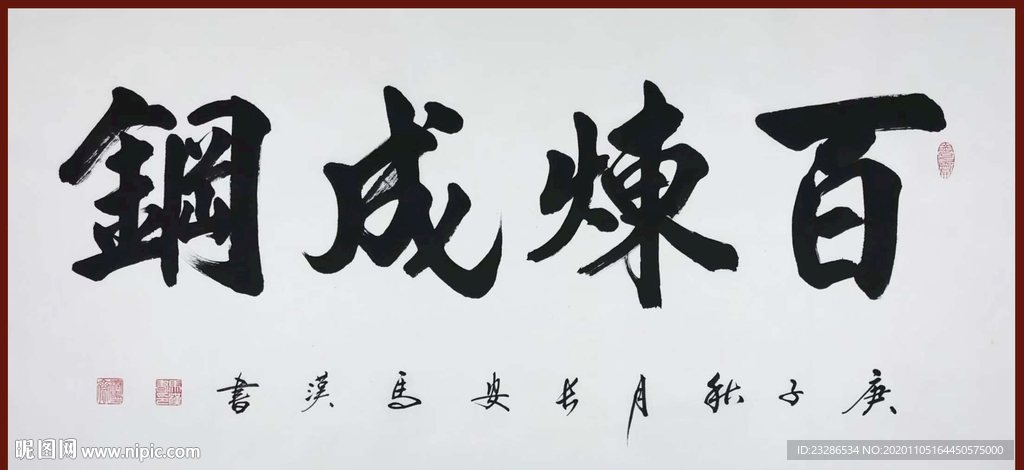 百煉成鋼
庚子秋月長安馬漢書
昵图网 www.nipic.com
ID:23286534 NO:20201105164450575000